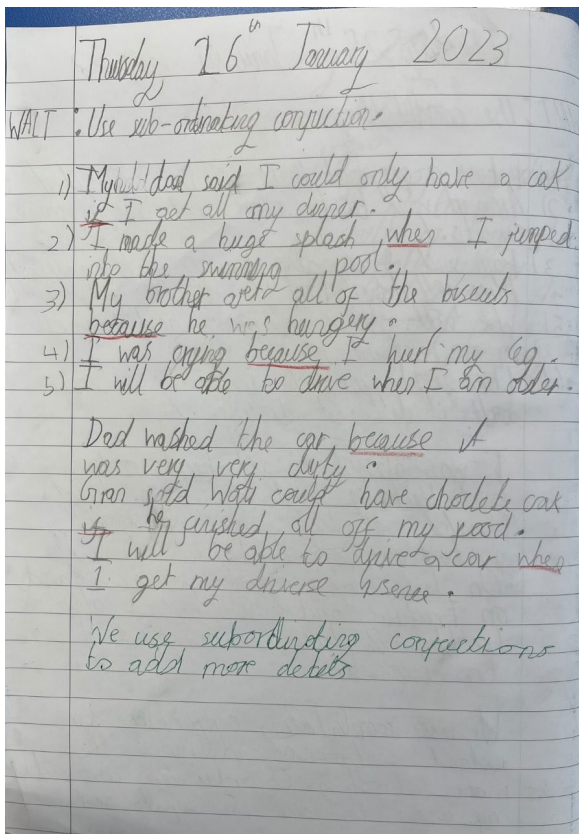 Thursday 26th January 2023
WALT: Use sub-ordinating conjuction.
1) My dad said I could only have a cak
if I get all my dinner.
2) I made a huge splash when I jumped
into the swimming pool.
3) My brother all of the biscuits
because he was hungery.
4) I was crying because I hurt my leg.
5) I will be able to drive when I am older.
Dad washed the car because it
was very very dirty.
Gran could have choclete cak
if he finished all off my food.
I will be able to drive a car when
I get my
We use subordinating conjuctions
to add more